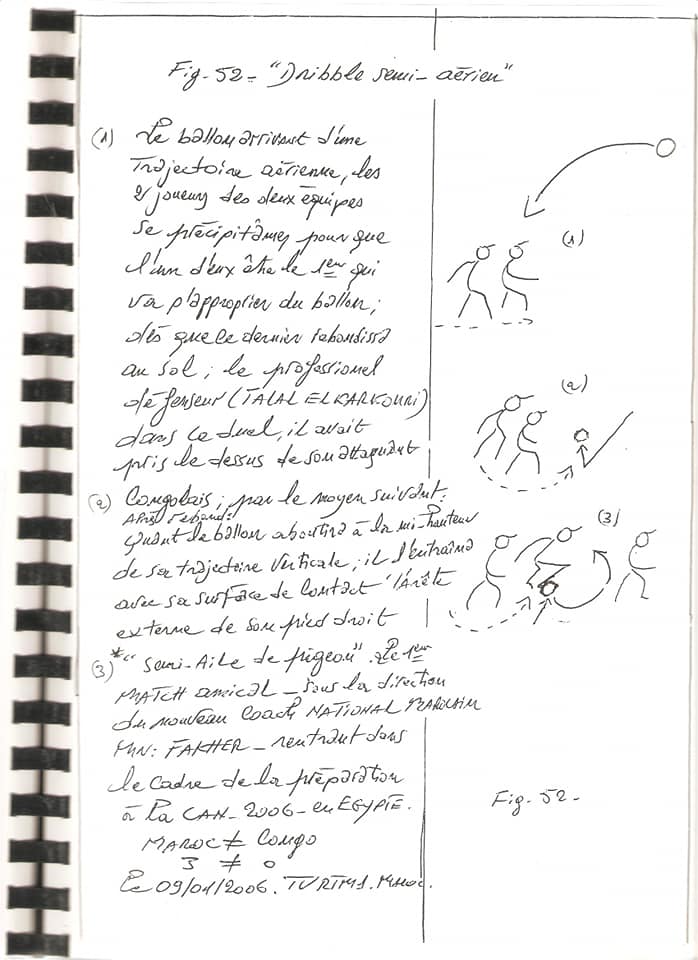 Fig-52- "Dribble semi-aérien"
(1) Le ballon arrivant d'une
Trajectoire aérienne, les
2 joueurs des deux équipes
se précipitâmes pour que
l'un d'eux être le 1er qui
va s'approprier du ballon;
dés que ce dernier rebondissa
au sol; le professionel
défenseur (TALAL EL KARKOURI)
dans ce duel, il avait
pris le dessus de son attaquant
(2) Congolais; par le moyen suivant:
Après rebond:
quant le ballon aboutira à la mi-hauteur
de sa trajectoire verticale; il l'entraîna
avec sa surface de contact "l'arête
externe de son pied droit
(3) *"semi-Aile de pigeon". Le 1er
MATCH amical - sous la direction
du nouveau coach NATIONAL MAROCAIN
FAKHER - rentrant dans
le cadre de la préparation
à la CAN-2006-en EGYPTE.
MAROC ≠ Congo
3 ≠ 0
Le 09/01/2006. TVRTM1. Maroc.
(1)
(2)
(3)
Fig-52-